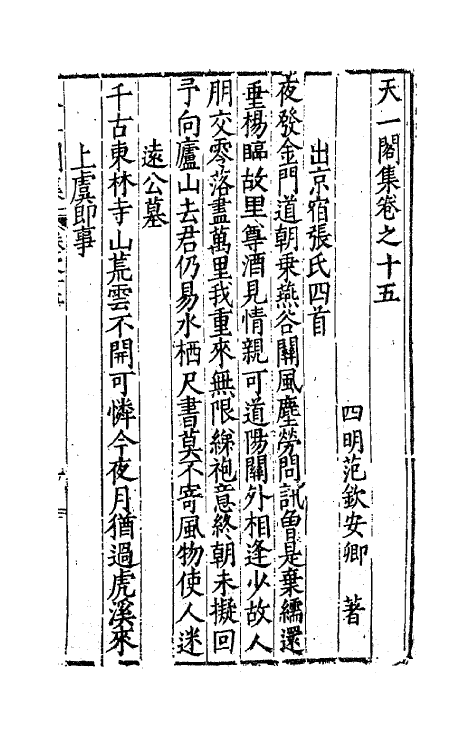 天一閣集卷之十五
四明范欽安卿 著
出京宿張氏四首
夜發金門道朝乗燕谷關風塵勞問訊曾是棄繻還
垂楊臨故里尊酒見情親可道陽關外相逢少故人
朋交零落盡萬里我重來無限綈袍意終朝未擬回
予向廬山去君仍易水栖尺書莫不寄風物使人迷
遠公墓
千古東林寺山荒雲不開可憐今夜月猶過虎溪來
上虞即事